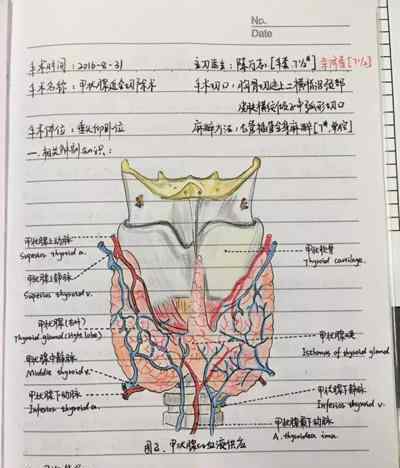 No.
Date
手术时间：2016-8-31 主刀医生：陈 [手套 7½#]
手术名称：甲状腺近全切除术 手术切口：胸骨切迹上二横指沿颈部
皮肤横纹做 弧形切口
手术体位：垂头仰卧位 麻醉方法：气管插管全身麻醉 [7#
一、相关解剖知识：
甲状腺上动脉
Superior thyroid a.
甲状腺上静脉
Superior thyroid v.
甲状腺(右叶)
Thyroid gland (right lobe)
甲状腺中静脉
Middle thyroid v.
甲状腺下动脉
Inferior thyroid a.
甲状软骨
Thyroid cartilage.
甲状腺峡
Isthmus of thyroid gland
甲状腺下静脉
Inferior thyroid v.
甲状腺最下动脉
A. thyroidea ima.
图2. 甲状腺的血液供应